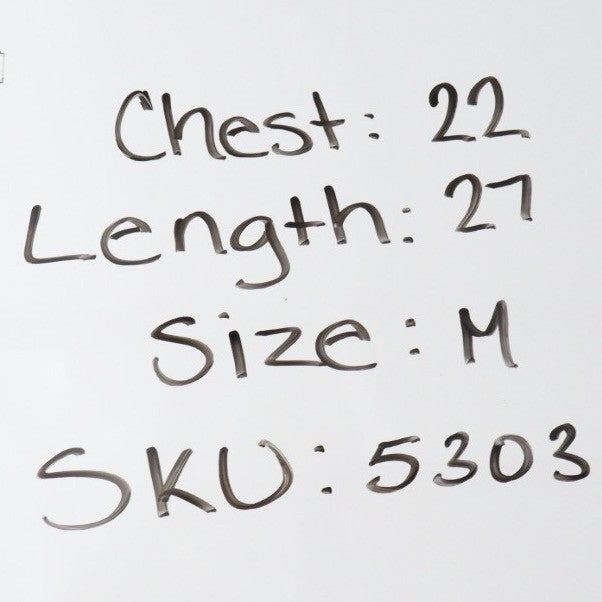 Chest: 22
Length: 27
Size: M
SKU: 5303